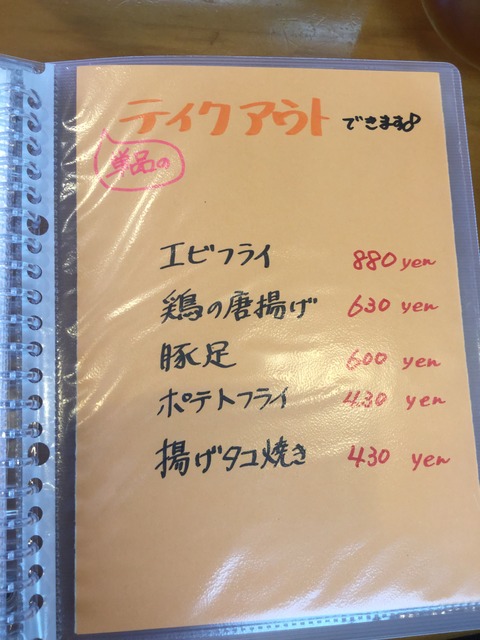 テイクアウトできます
単品の
エビフライ 880 yen
鶏の唐揚げ 630 yen
豚足 600 yen
ポテトフライ 430 yen
揚げタコ焼き 430 yen